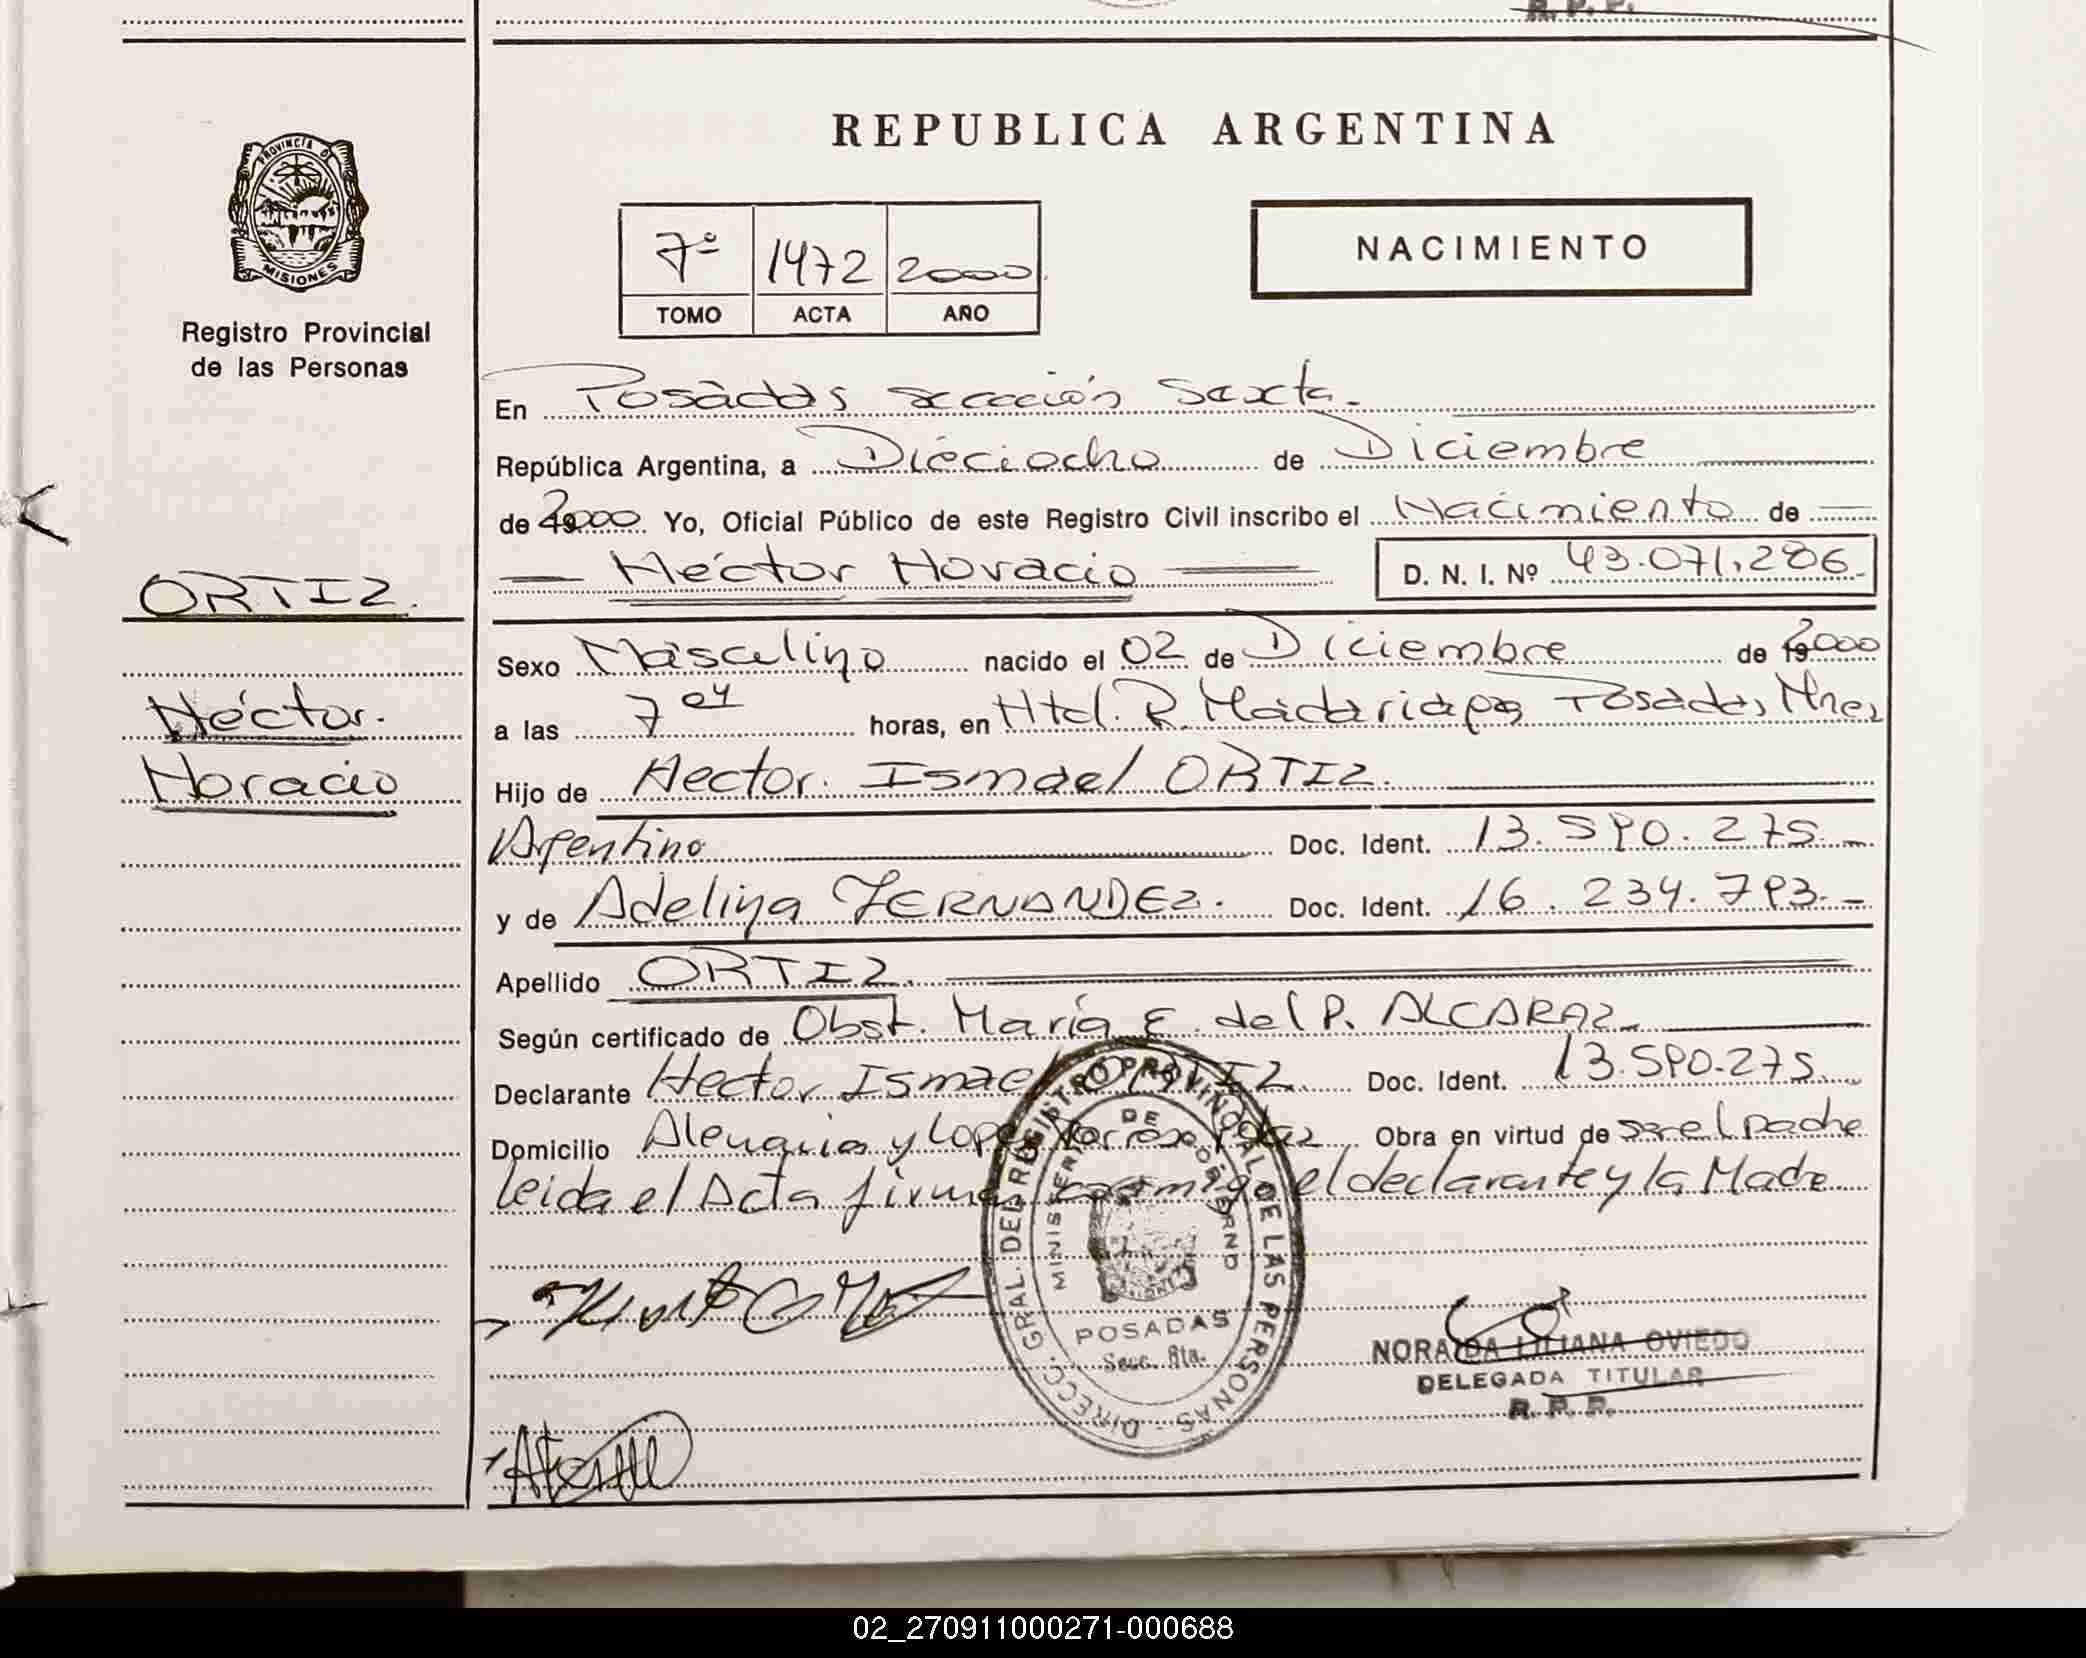 R. P. P.
PROVINCIA DE
MISIONES
Registro Provincial
de las Personas
REPUBLICA ARGENTINA
7º 1472 2000
TOMO ACTA AÑO
NACIMIENTO
En Posadas sección Sexta.
República Argentina, a Dieciocho de Diciembre
de 2000 Yo, Oficial Público de este Registro Civil inscribo el Nacimiento de
Héctor Horacio D. N. I. Nº 43.071.286
ORTIZ.
Héctor.
Horacio
Sexo Masculino nacido el 02 de Diciembre de 2000
a las 7 horas, en Htal. R. Madariaga Posadas Mnes
Hijo de Hector. Ismael ORTIZ.
Argentino Doc. Ident. 13.590.275.-
y de Adelina FERNANDEZ. Doc. Ident. 16.234.793.-
Apellido ORTIZ.
Según certificado de Obst. María E. del P. ALCARAZ
Declarante Hector Ismael ORTIZ Doc. Ident. 13.590.275.
Domicilio Alemania y Lopez Obra en virtud de ser el padre
leida el Acta firman conmigo el declarante y la Madre
DIRECC. GRAL. DEL REGISTRO PROVINCIAL DE LAS PERSONAS
MINISTERIO DE GOBIERNO
POSADAS
Secc. 6ta.
NORAIDA LILIANA OVIEDO
DELEGADA TITULAR
R. P. P.
02_270911000271-000688